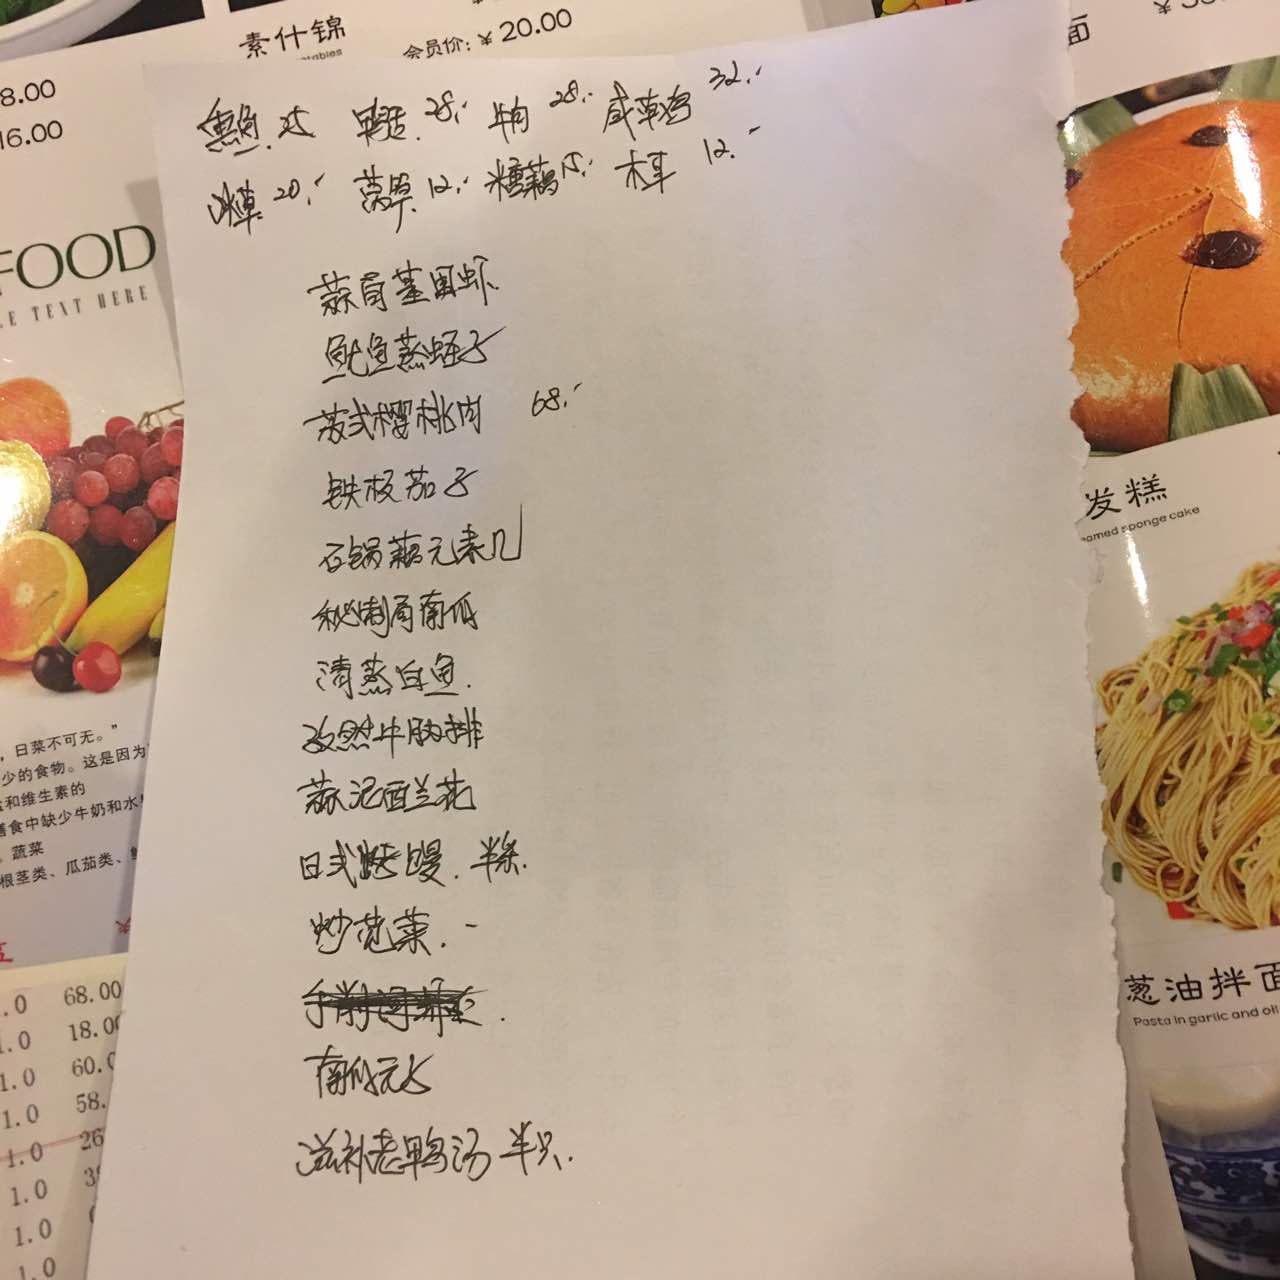 素什锦
会员价：￥20.00
8.00
16.00
面
牛肉 28.-
32.-
20.-
12.-
糖藕 15.-
木耳 12.-
FOOD
LE TEXT HERE
蒜蓉基围虾
鱿鱼蒸蛏子
苏式樱桃肉 68.-
铁板茄子
石锅藕元素几
秘制焗南瓜
清蒸白鱼.
孜然牛肋排
蒜泥西兰花
日式烤鳗.半条.
炒花菜.-
南瓜元子
滋补老鸭汤 半只.
发糕
eamed sponge cake
葱油拌面
Pasta in garlic and oil
，日菜不可无。”
少的食物。这是因为
和维生素的
膳食中缺少牛奶和水
。蔬菜
根茎类、瓜茄类、
.0 68.00
1.0 18.00
1.0 60.0
1.0 58.
1.0 26
1.0 3
1.0
1.0